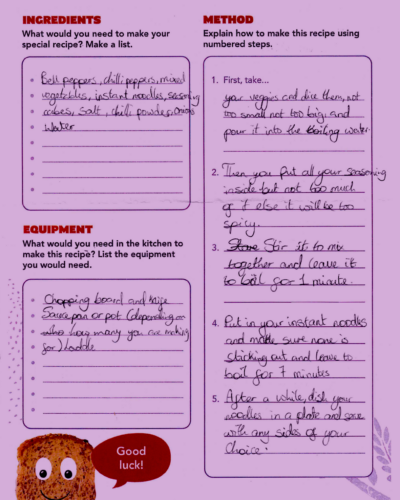 INGREDIENTS
What would you need to make your
special recipe? Make a list.
Bell peppers, chilli peppers, mixed
vegetables, instant noodles, seasoning
cubes, salt, chilli powder, onions
Water
EQUIPMENT
What would you need in the kitchen to
make this recipe? List the equipment
you would need.
Chopping board and knife
Saucepan or pot (depending on
who how many you are making
for) laddle
METHOD
Explain how to make this recipe using
numbered steps.
1. First, take...
your veggies and dice them, not
too small not too big and
pour it into the boiling water
2. Then you put all your seasoning
inside but not too much
of it else it will be too
spicy.
3. Stir it to mix
together and leave it
to boil for 1 minute.
4. Put in your instant noodles
and make sure none is
sticking out and leave to
boil for 7 minutes
5. After a while, dish your
noodles in a plate and serve
with any sides of your
choice.
Good
luck!